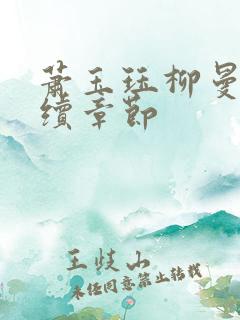 萧玉珏柳曼
续章节
王岐山
未经同意禁止转载